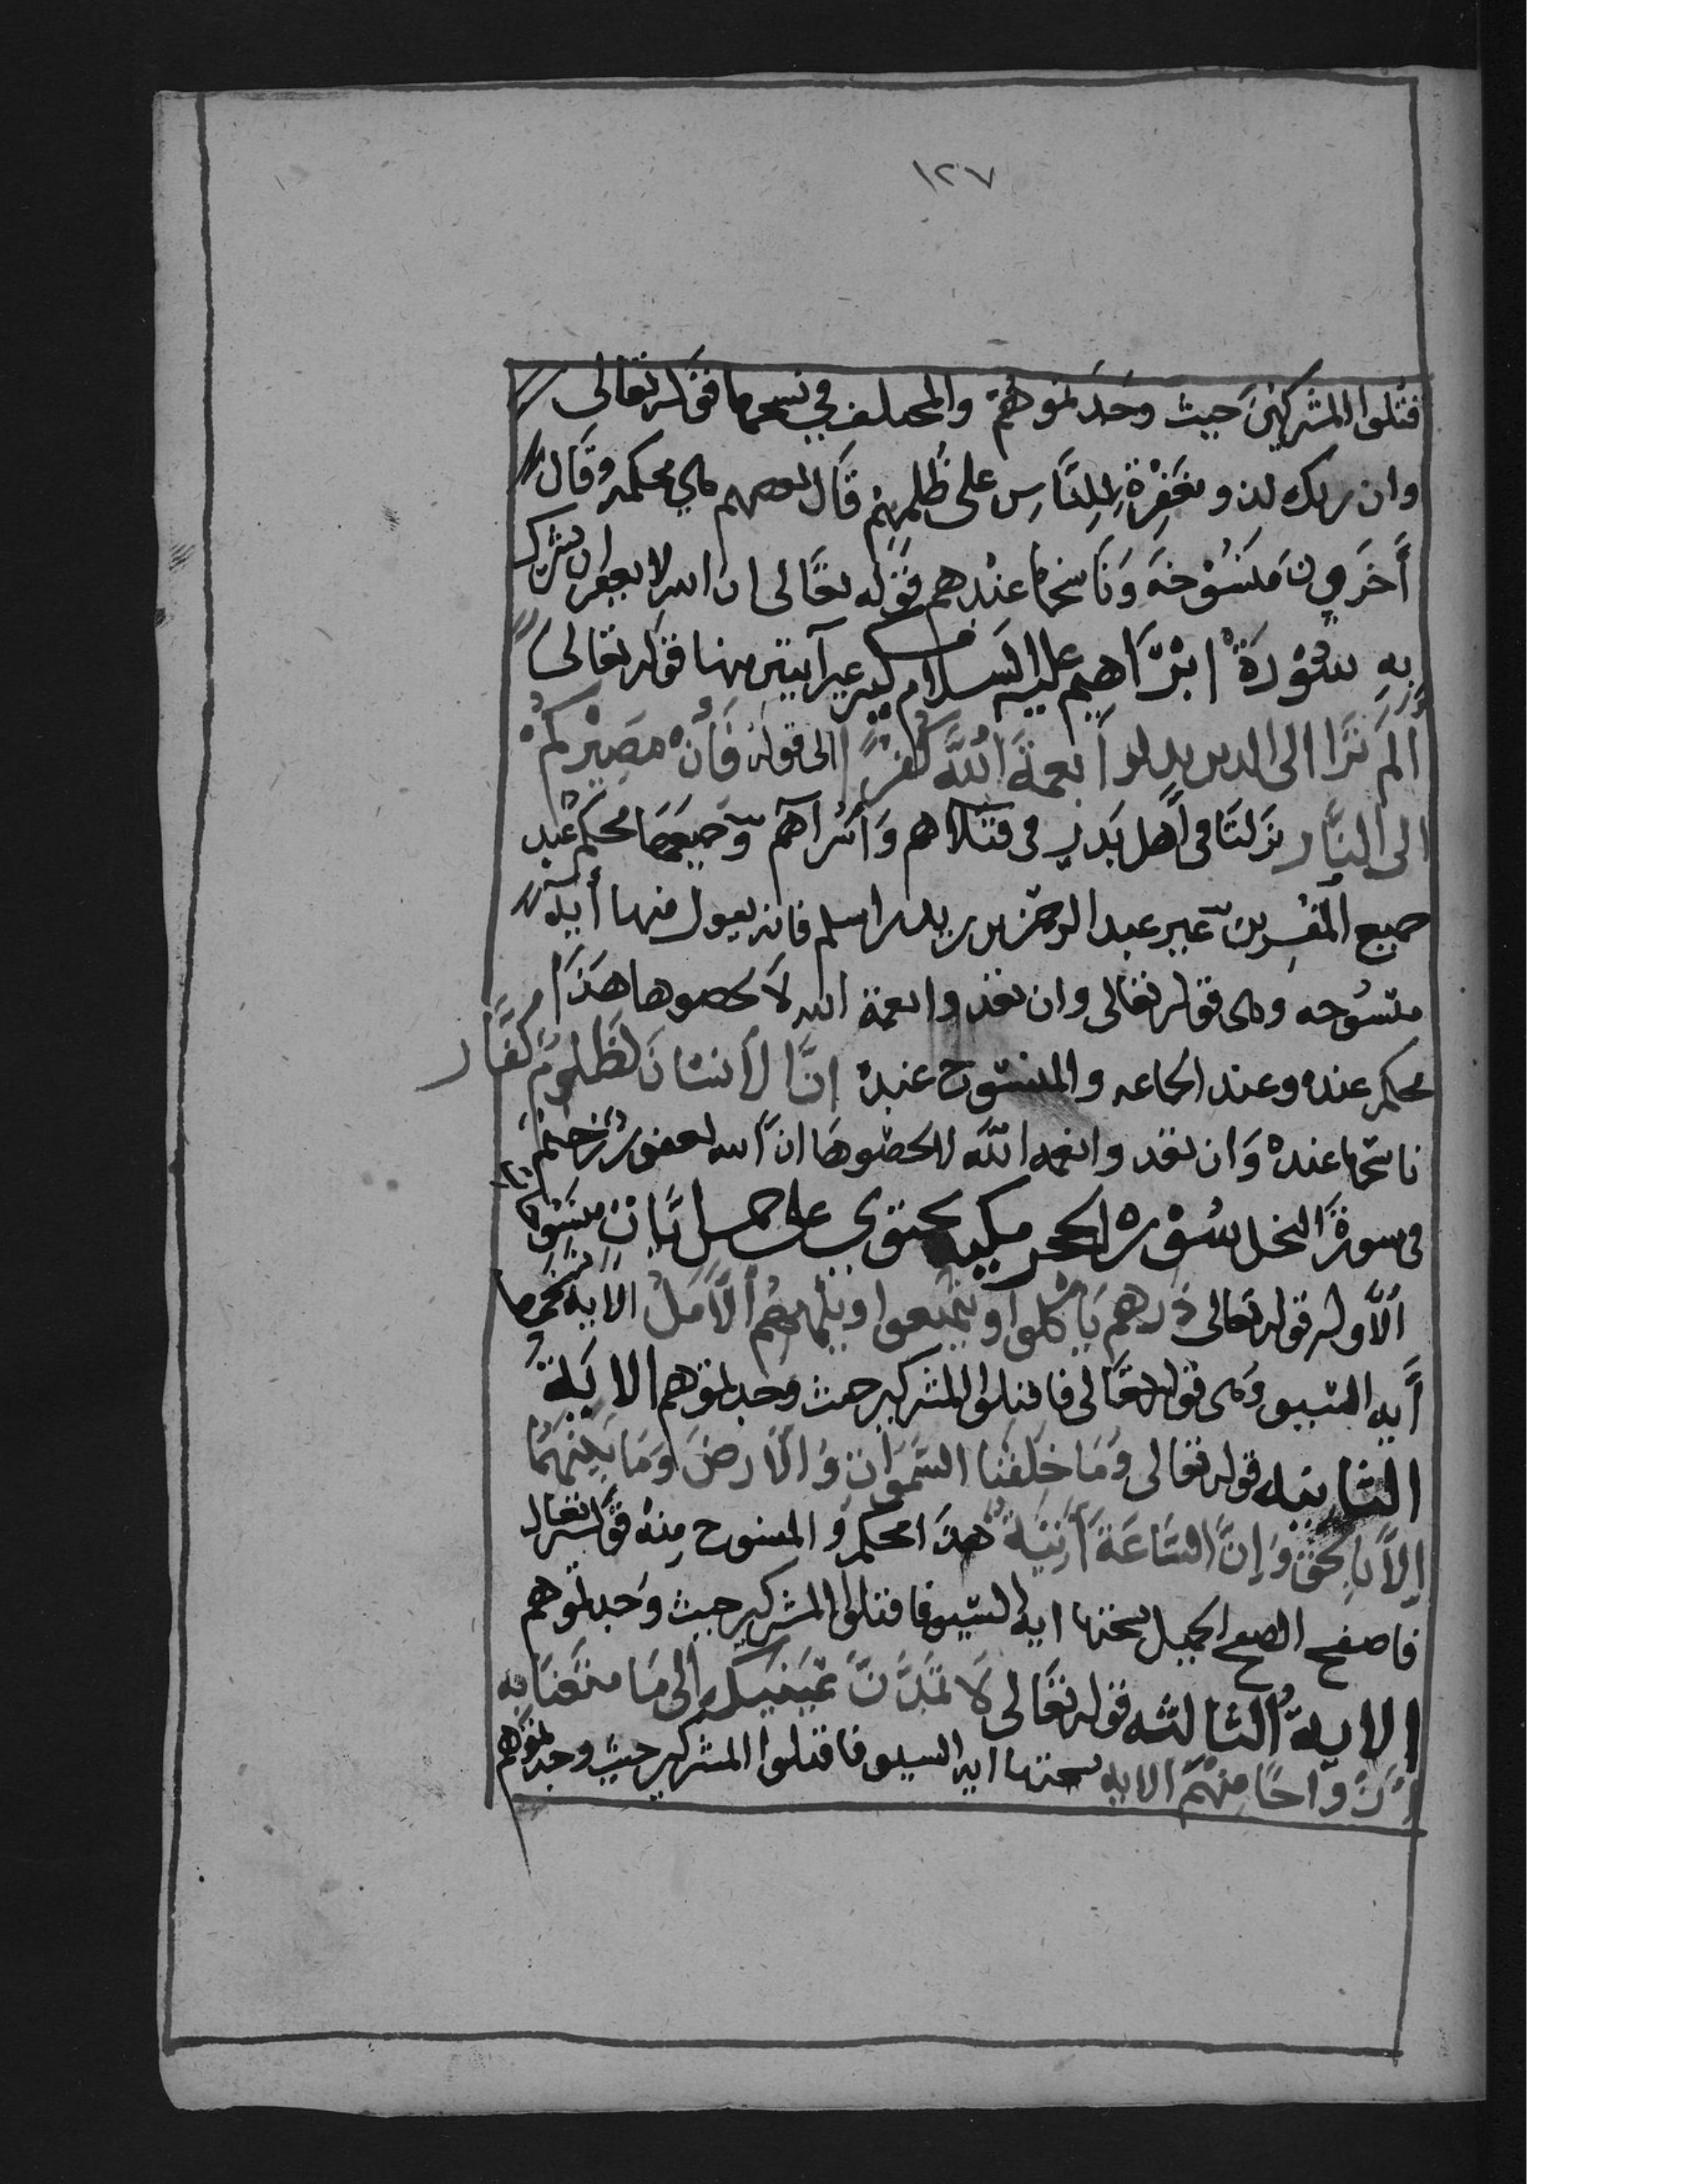 ١٢٧
فتلوا المشركين حيث وجدتموهم والمختلف في نسخها فقوله تعالى
وان ربك لذو مغفرة للناس على ظلمهم قال بعضهم هي محكمه وقال
أخرون منسوخة وناسخها عندهم قوله تعالى ان الله لا يغفر ان يشرك
به سورة ابراهيم عليه السلام مكيه غير آيتين منها قوله تعالى
ألم ترا الى الدين بدلوا نعمة الله كفرا الى قوله فأن مصيركم
الى النار نزلتا في أهل بدر في قتلاهم وأسراهم وجميعها محكم عند
جميع المفسرين غير عبد الرحمن بن زيد بن اسلم فانه يقول فيها أيه
منسوخه وهى قوله تعالى وان تعدوا نعمة الله لا تحصوها هذا
محكم عنده وعند الجماعه والمنسوخ عنده ان الانسان لظلوم كفار
ناسخها عنده وان تعدوا نعمه الله لا تحصوها ان الله لغفور رحيم
فى سورة النحل سورة الحجر مكيه تحتوي على خمس ايات منسوخات
الأوله قوله تعالى ذرهم يأكلوا ويتمتعوا ويلههم الأمل الايه نسخها
أيه السيف وهى قوله تعالى فاقتلوا المشركين حيث وجدتموهم الاية
الثانيه قوله تعالى وما خلقنا السموات والارض وما بينهما
إلا بالحق وإن الساعة أتية هذا محكم والمنسوخ منه قوله تعالى
فاصفح الصفح الجميل نسختها ايه السيف فاقتلوا المشركين حيث وجدتموهم
الاية الثالثه قوله تعالى لا تمدن عينيك الى ما متعنا به
أزواجا منهم الايه نسختها ايه السيف فاقتلوا المشركين حيث وجدتموهم